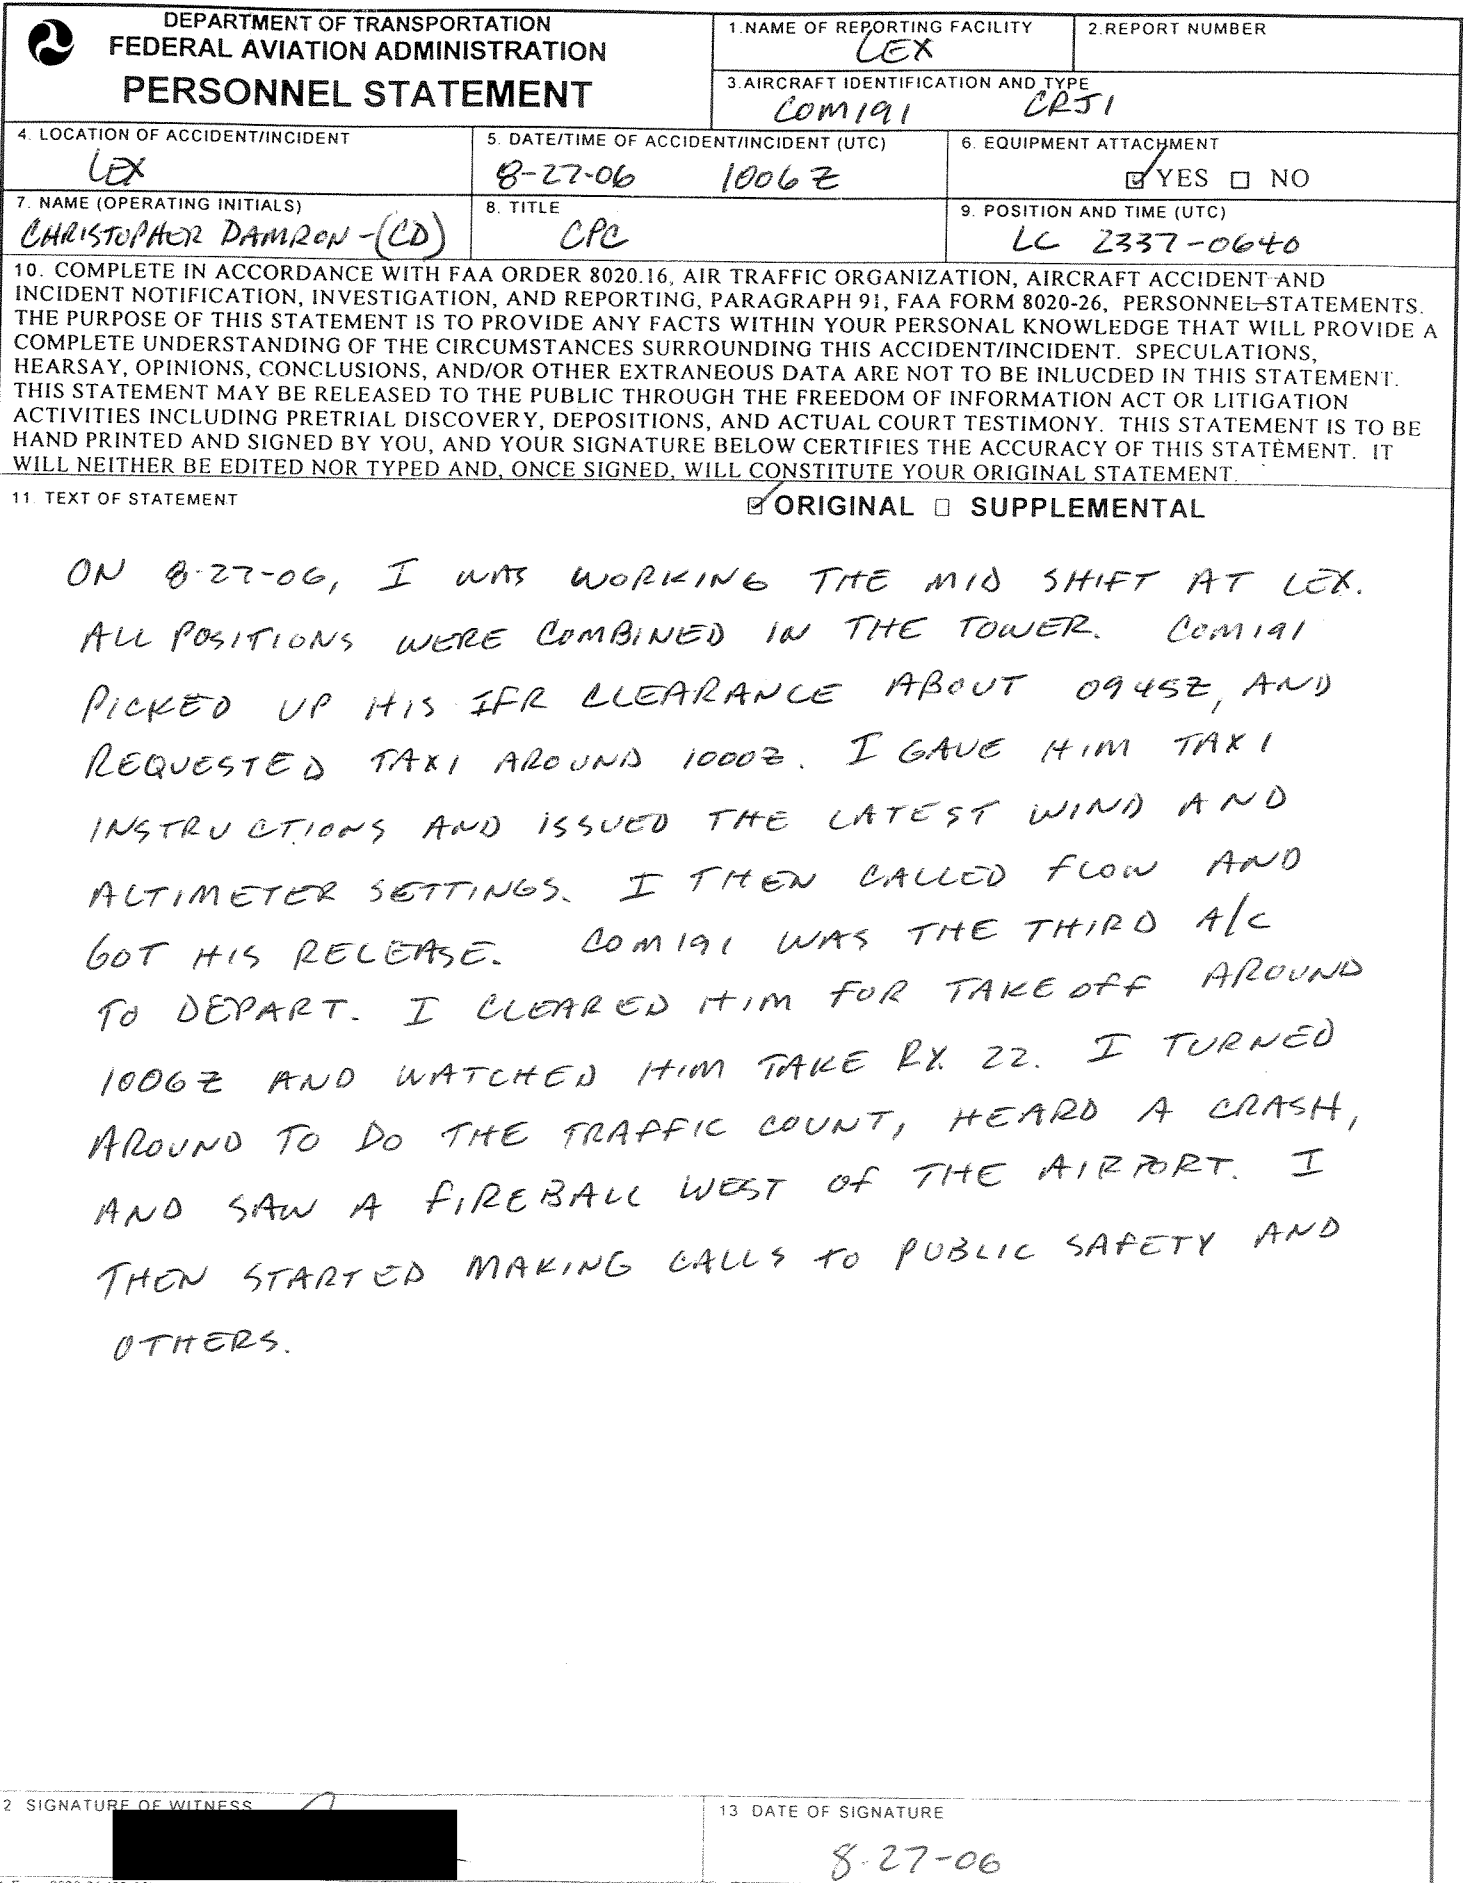 DEPARTMENT OF TRANSPORTATION
FEDERAL AVIATION ADMINISTRATION
PERSONNEL STATEMENT
1.NAME OF REPORTING FACILITY
LEX
2.REPORT NUMBER
3.AIRCRAFT IDENTIFICATION AND TYPE
COM191 CRJ1
4. LOCATION OF ACCIDENT/INCIDENT
LEX
5. DATE/TIME OF ACCIDENT/INCIDENT (UTC)
8-27-06 1006Z
6. EQUIPMENT ATTACHMENT
☑ YES ☐ NO
7. NAME (OPERATING INITIALS)
CHRISTOPHER DAMRON-(CD)
8. TITLE
CPC
9. POSITION AND TIME (UTC)
LC 2337-0640
10. COMPLETE IN ACCORDANCE WITH FAA ORDER 8020.16, AIR TRAFFIC ORGANIZATION, AIRCRAFT ACCIDENT AND
INCIDENT NOTIFICATION, INVESTIGATION, AND REPORTING, PARAGRAPH 91, FAA FORM 8020-26, PERSONNEL STATEMENTS.
THE PURPOSE OF THIS STATEMENT IS TO PROVIDE ANY FACTS WITHIN YOUR PERSONAL KNOWLEDGE THAT WILL PROVIDE A
COMPLETE UNDERSTANDING OF THE CIRCUMSTANCES SURROUNDING THIS ACCIDENT/INCIDENT. SPECULATIONS,
HEARSAY, OPINIONS, CONCLUSIONS, AND/OR OTHER EXTRANEOUS DATA ARE NOT TO BE INLUCDED IN THIS STATEMENT.
THIS STATEMENT MAY BE RELEASED TO THE PUBLIC THROUGH THE FREEDOM OF INFORMATION ACT OR LITIGATION
ACTIVITIES INCLUDING PRETRIAL DISCOVERY, DEPOSITIONS, AND ACTUAL COURT TESTIMONY. THIS STATEMENT IS TO BE
HAND PRINTED AND SIGNED BY YOU, AND YOUR SIGNATURE BELOW CERTIFIES THE ACCURACY OF THIS STATEMENT. IT
WILL NEITHER BE EDITED NOR TYPED AND, ONCE SIGNED, WILL CONSTITUTE YOUR ORIGINAL STATEMENT.
11. TEXT OF STATEMENT
☑ ORIGINAL ☐ SUPPLEMENTAL
ON 8-27-06, I WAS WORKING THE MID SHIFT AT LEX.
ALL POSITIONS WERE COMBINED IN THE TOWER. COM191
PICKED UP HIS IFR CLEARANCE ABOUT 0945Z, AND
REQUESTED TAXI AROUND 1000Z. I GAVE HIM TAXI
INSTRUCTIONS AND ISSUED THE LATEST WIND AND
ALTIMETER SETTINGS. I THEN CALLED FLOW AND
GOT HIS RELEASE. COM191 WAS THE THIRD A/C
TO DEPART. I CLEARED HIM FOR TAKEOFF AROUND
1006Z AND WATCHED HIM TAKE RY. 22. I TURNED
AROUND TO DO THE TRAFFIC COUNT, HEARD A CRASH,
AND SAW A FIREBALL WEST OF THE AIRPORT. I
THEN STARTED MAKING CALLS TO PUBLIC SAFETY AND
OTHERS.
2 SIGNATURE OF WITNESS
13 DATE OF SIGNATURE
8-27-06